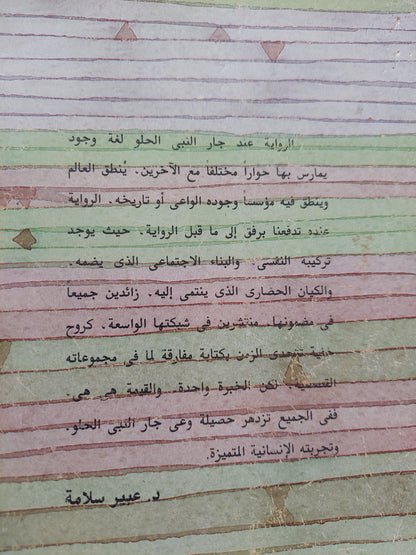 الرواية عند جار النبى الحلو لغة وجود
يمارس بها حواراً مختلفاً مع الآخرين. يُنطق العالم
وينطق فيه مؤسساً وجوده الواعى أو تاريخه. الرواية
عنده تدفعنا برفق إلى ما قبل الرواية. حيث يوجد
تركيبه النفسى. والبناء الاجتماعى الذى يضمه.
والكيان الحضارى الذى ينتمى إليه. زائدين جميعاً
فى مضمونها. منتشرين فى شبكتها الواسعة. كروح
تتحدى الزمن بكتابة مفارقة لما فى مجموعاته
القصصية. لكن الخبرة واحدة. والقيمة هى هى.
ففى الجميع تزدهر حصيلة وعى جار النبى الحلو.
وتجربته الإنسانية المتميزة.
د. عبير سلامة